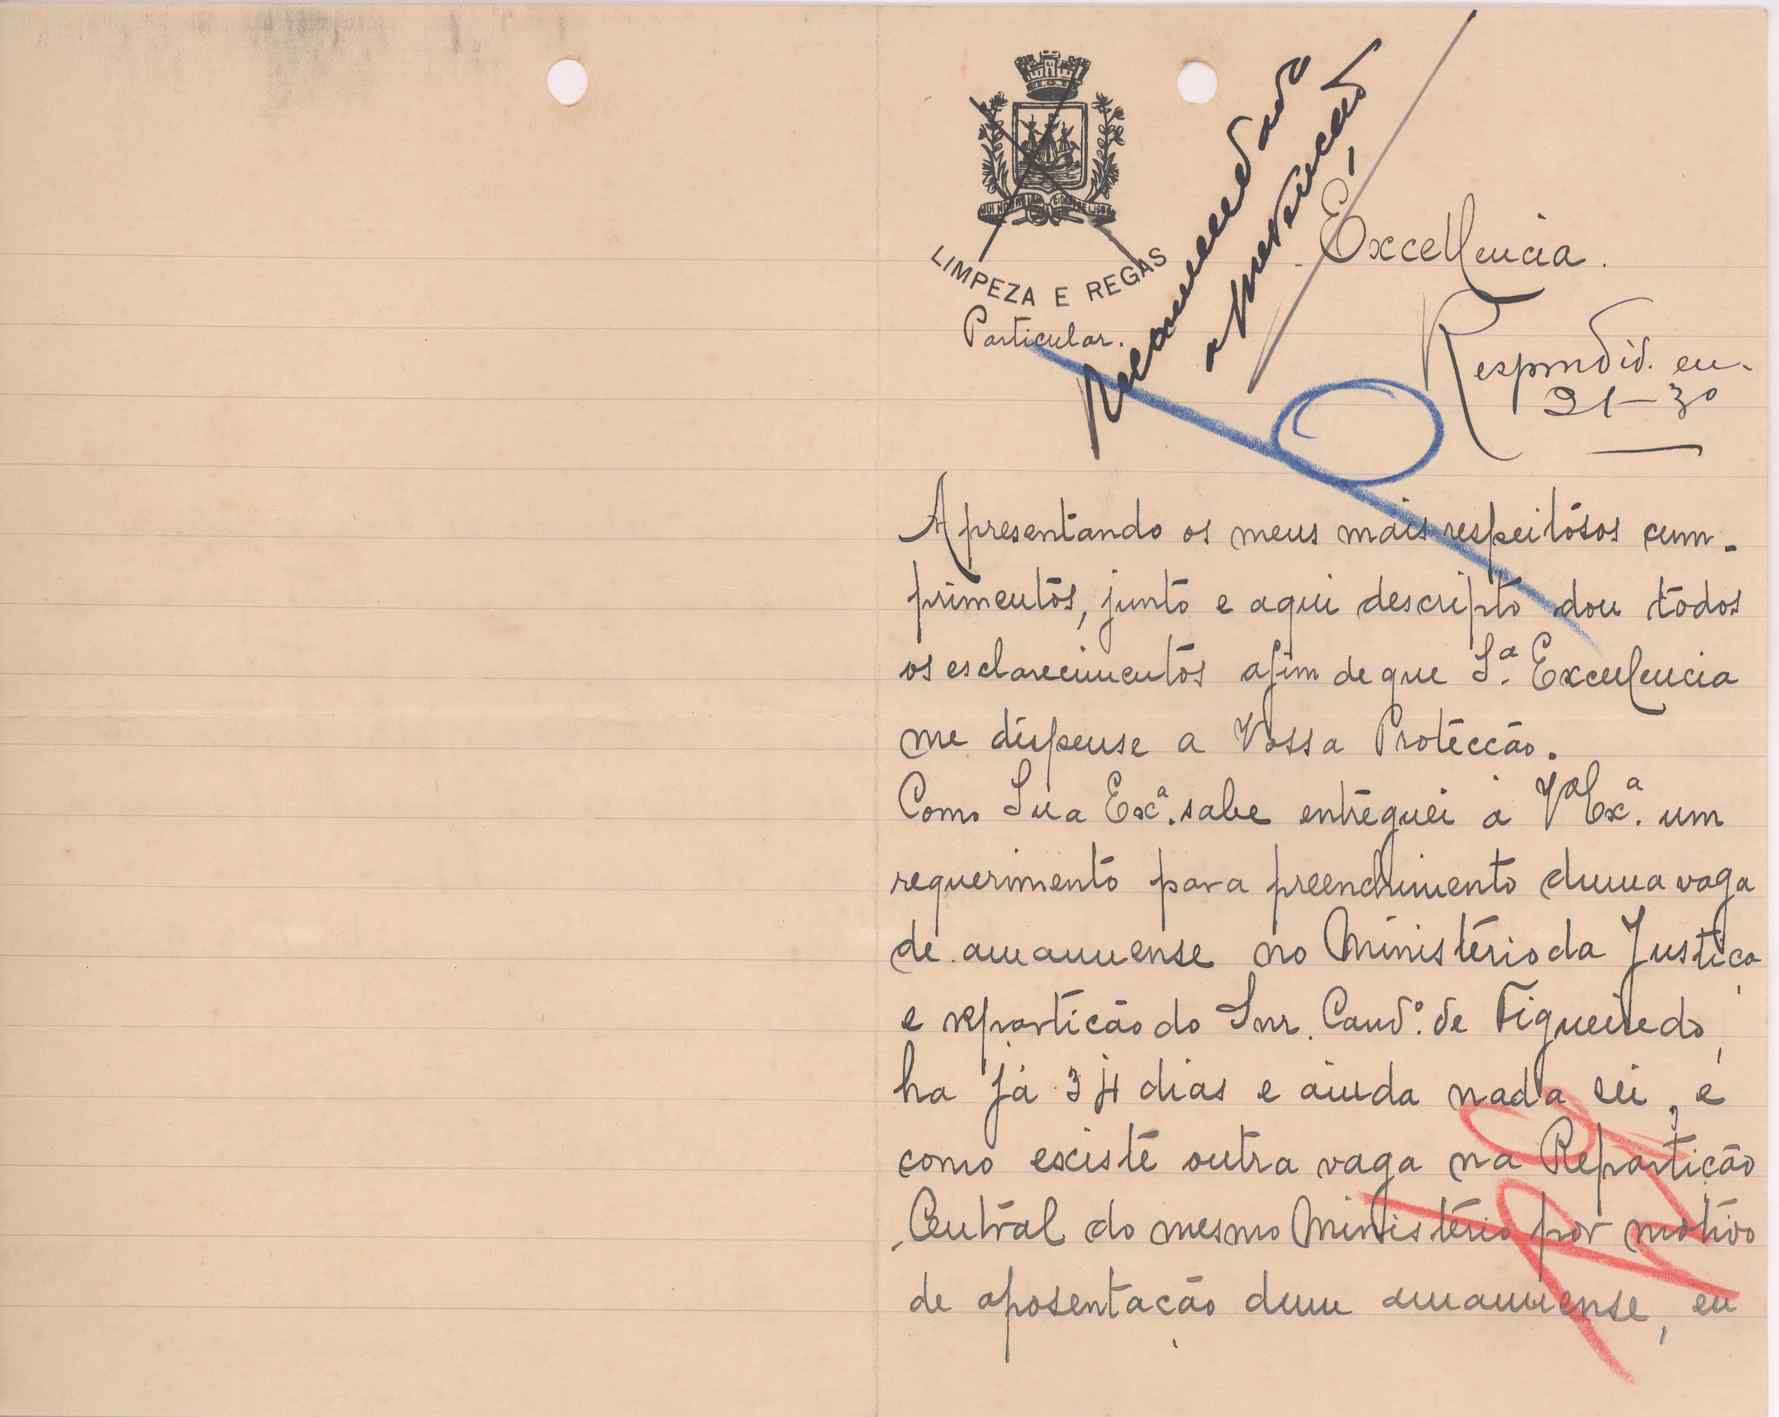 LIMPEZA E REGAS
Particular.
Recommendado
Excellencia.
Respondid. em
21-30
Apresentando os meus mais respeitósos cum-
primentos, junto e aqui descripto dou todos
os esclarecimentos afim de que S.ª Excellencia
me dispense a Vossa Protecção.
Como Sua Ex.ª sabe entreguei a Vª Exª. um
requerimento para preenchimento duma vaga
de amanuense no Ministério da Justiça,
e repartição do Snr. Cand.º de Figueiredo,
ha já 34 dias e ainda nada sei, e
como existe outra vaga na Repartição
Central do mesmo Ministério por motivo
de aposentação dum amanuense, eu